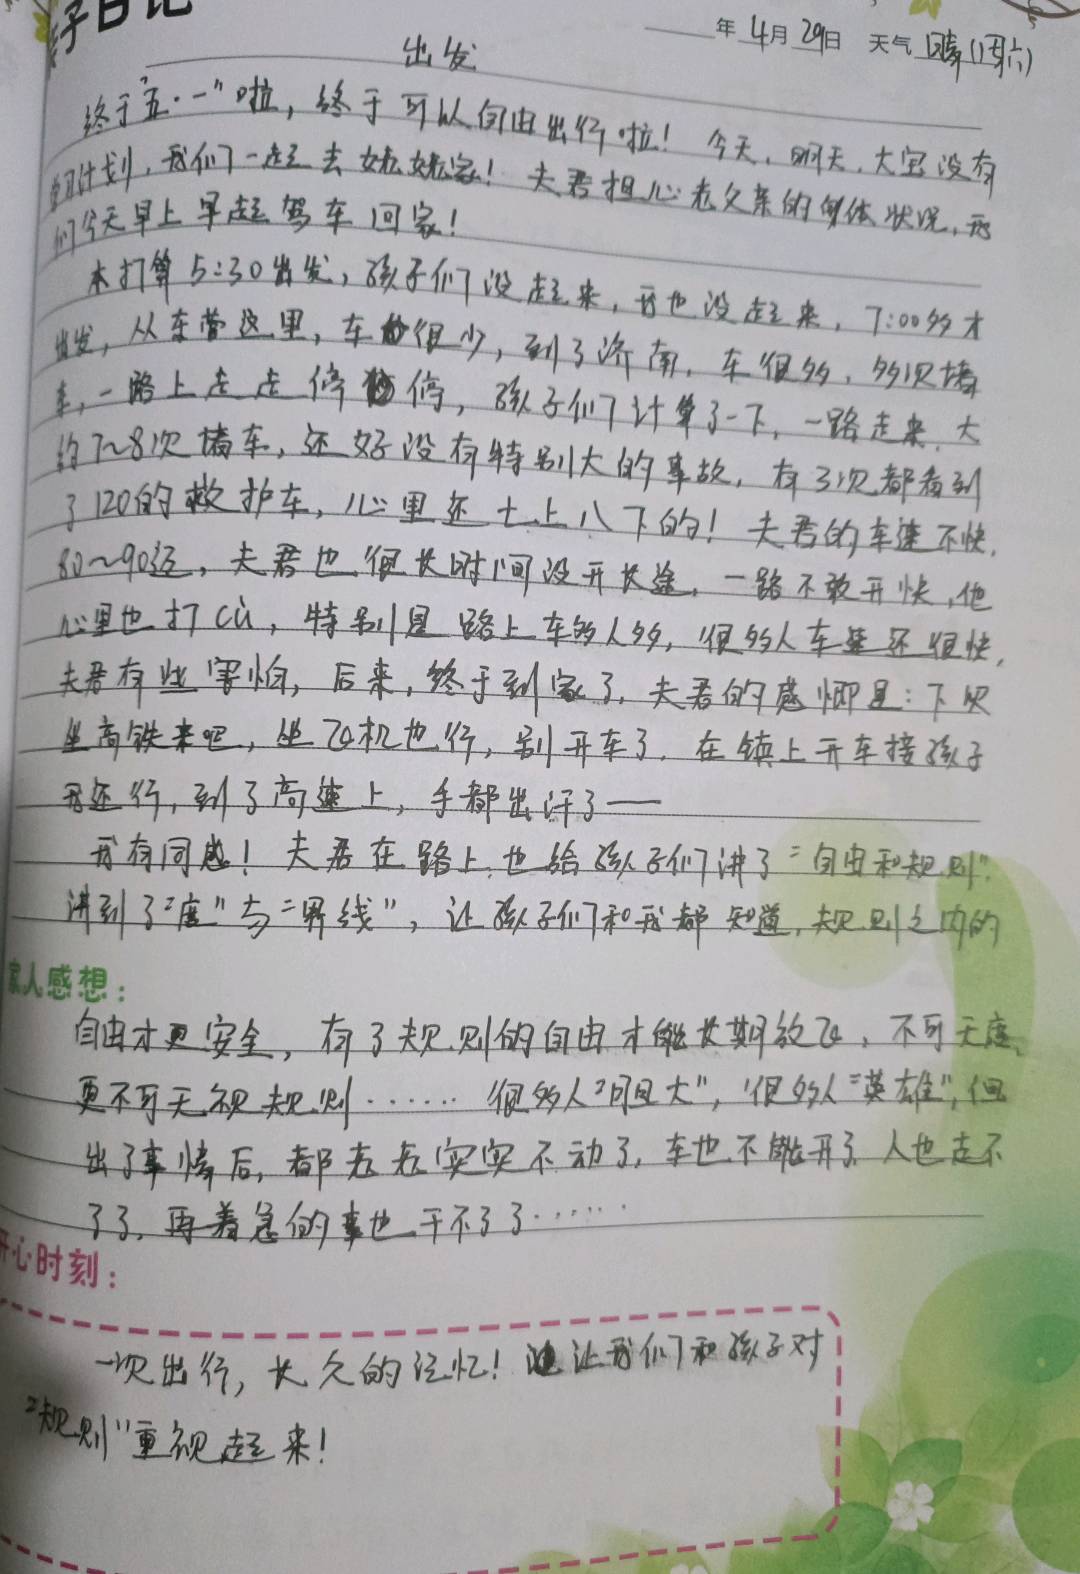 子日记
年 4月 29日 天气 晴(周六)
出发
终于"五·一"啦，终于可以自由出行啦！今天、明天，大宝没有
学习计划，我们一起去姥姥家！夫君担心老父亲的身体状况，我
们今天早上早起驾车回家！
本打算5:30出发，孩子们没起来，我也没起来，7:00多才
出发，从东营这里，车很少，到了济南，车很多，多次堵
车，一路上走走停停，孩子们计算了一下，一路走来，大
约7~8次堵车，还好没有特别大的事故，有3次都看到
了120的救护车，心里还七上八下的！夫君的车速不快，
80~90迈，夫君也很长时间没开长途，一路不敢开快，他
心里也打cù，特别是路上车多人多，很多人车速还很快，
夫君有些害怕，后来，终于到家了，夫君的感慨是：下次
坐高铁来吧，坐飞机也行，别开车了，在镇上开车接孩子
我还行，到了高速上，手都出汗了——
我有同感！夫君在路上也给孩子们讲了"自由和规则"
讲到了"度"与"界线"，让孩子们和我都知道，规则之内的
家人感想：
自由才更安全，有了规则的自由才能长期放飞，不可无度，
更不可无视规则…… 很多人"胆大"，很多人"英雄"，但
出了事情后，都老老实实不动了，车也不能开了，人也走不
了了，再着急的事也干不了了……
开心时刻：
一次出行，长久的记忆！让我们和孩子对
"规则"重视起来！